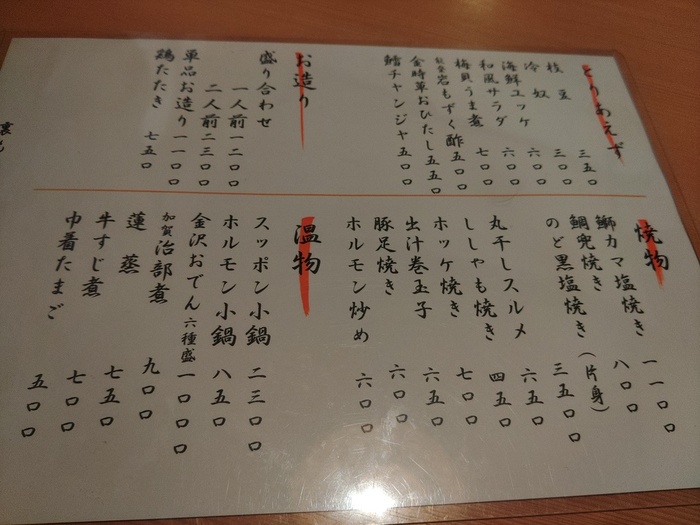 とりあえず
枝豆 三五〇
冷奴 三〇〇
海鮮ユッケ 六〇〇
和風サラダ 六〇〇
梅貝うま煮 七〇〇
能登岩もずく酢 五〇〇
金時草おひたし 五五〇
鱈チャンジャ 五〇〇
お造り
盛り合わせ
一人前 一二〇〇
二人前 二三〇〇
単品お造り 一一〇〇
鶏たたき 七五〇
裏も
焼物
鰤カマ塩焼き 一一〇〇
鯛兜焼き 八〇〇
のど黒塩焼き(片身) 三五〇〇
丸干しスルメ 六五〇
ししゃも焼き 四五〇
ホッケ焼き 七〇〇
出汁巻玉子 六五〇
豚足焼き 六〇〇
ホルモン炒め 六〇〇
温物
スッポン小鍋 二三〇〇
ホルモン小鍋 八五〇
金沢おでん 六種盛 一〇〇〇
加賀治部煮 九〇〇
蓮蒸 七五〇
牛すじ煮 七〇〇
巾着たまご 五〇〇